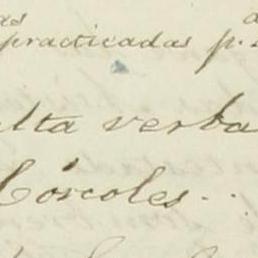 as
practicadas p.
lta verba
Córcoles.